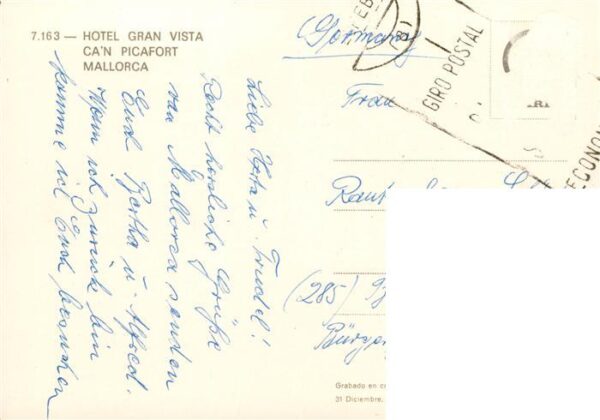 7.163 — HOTEL GRAN VISTA
CA'N PICAFORT
MALLORCA
Liebe Herta u. Trudel!
Recht herzliche Grüße
von Mallorca senden
Euch Bertha u. Alfred.
Wenn ich zurück bin
komme ich Euch besuchen
(Germany)
Frau
(285)
Bürger
GIRO POSTAL
ECONOM
Grabado en c
31 Diciembre,